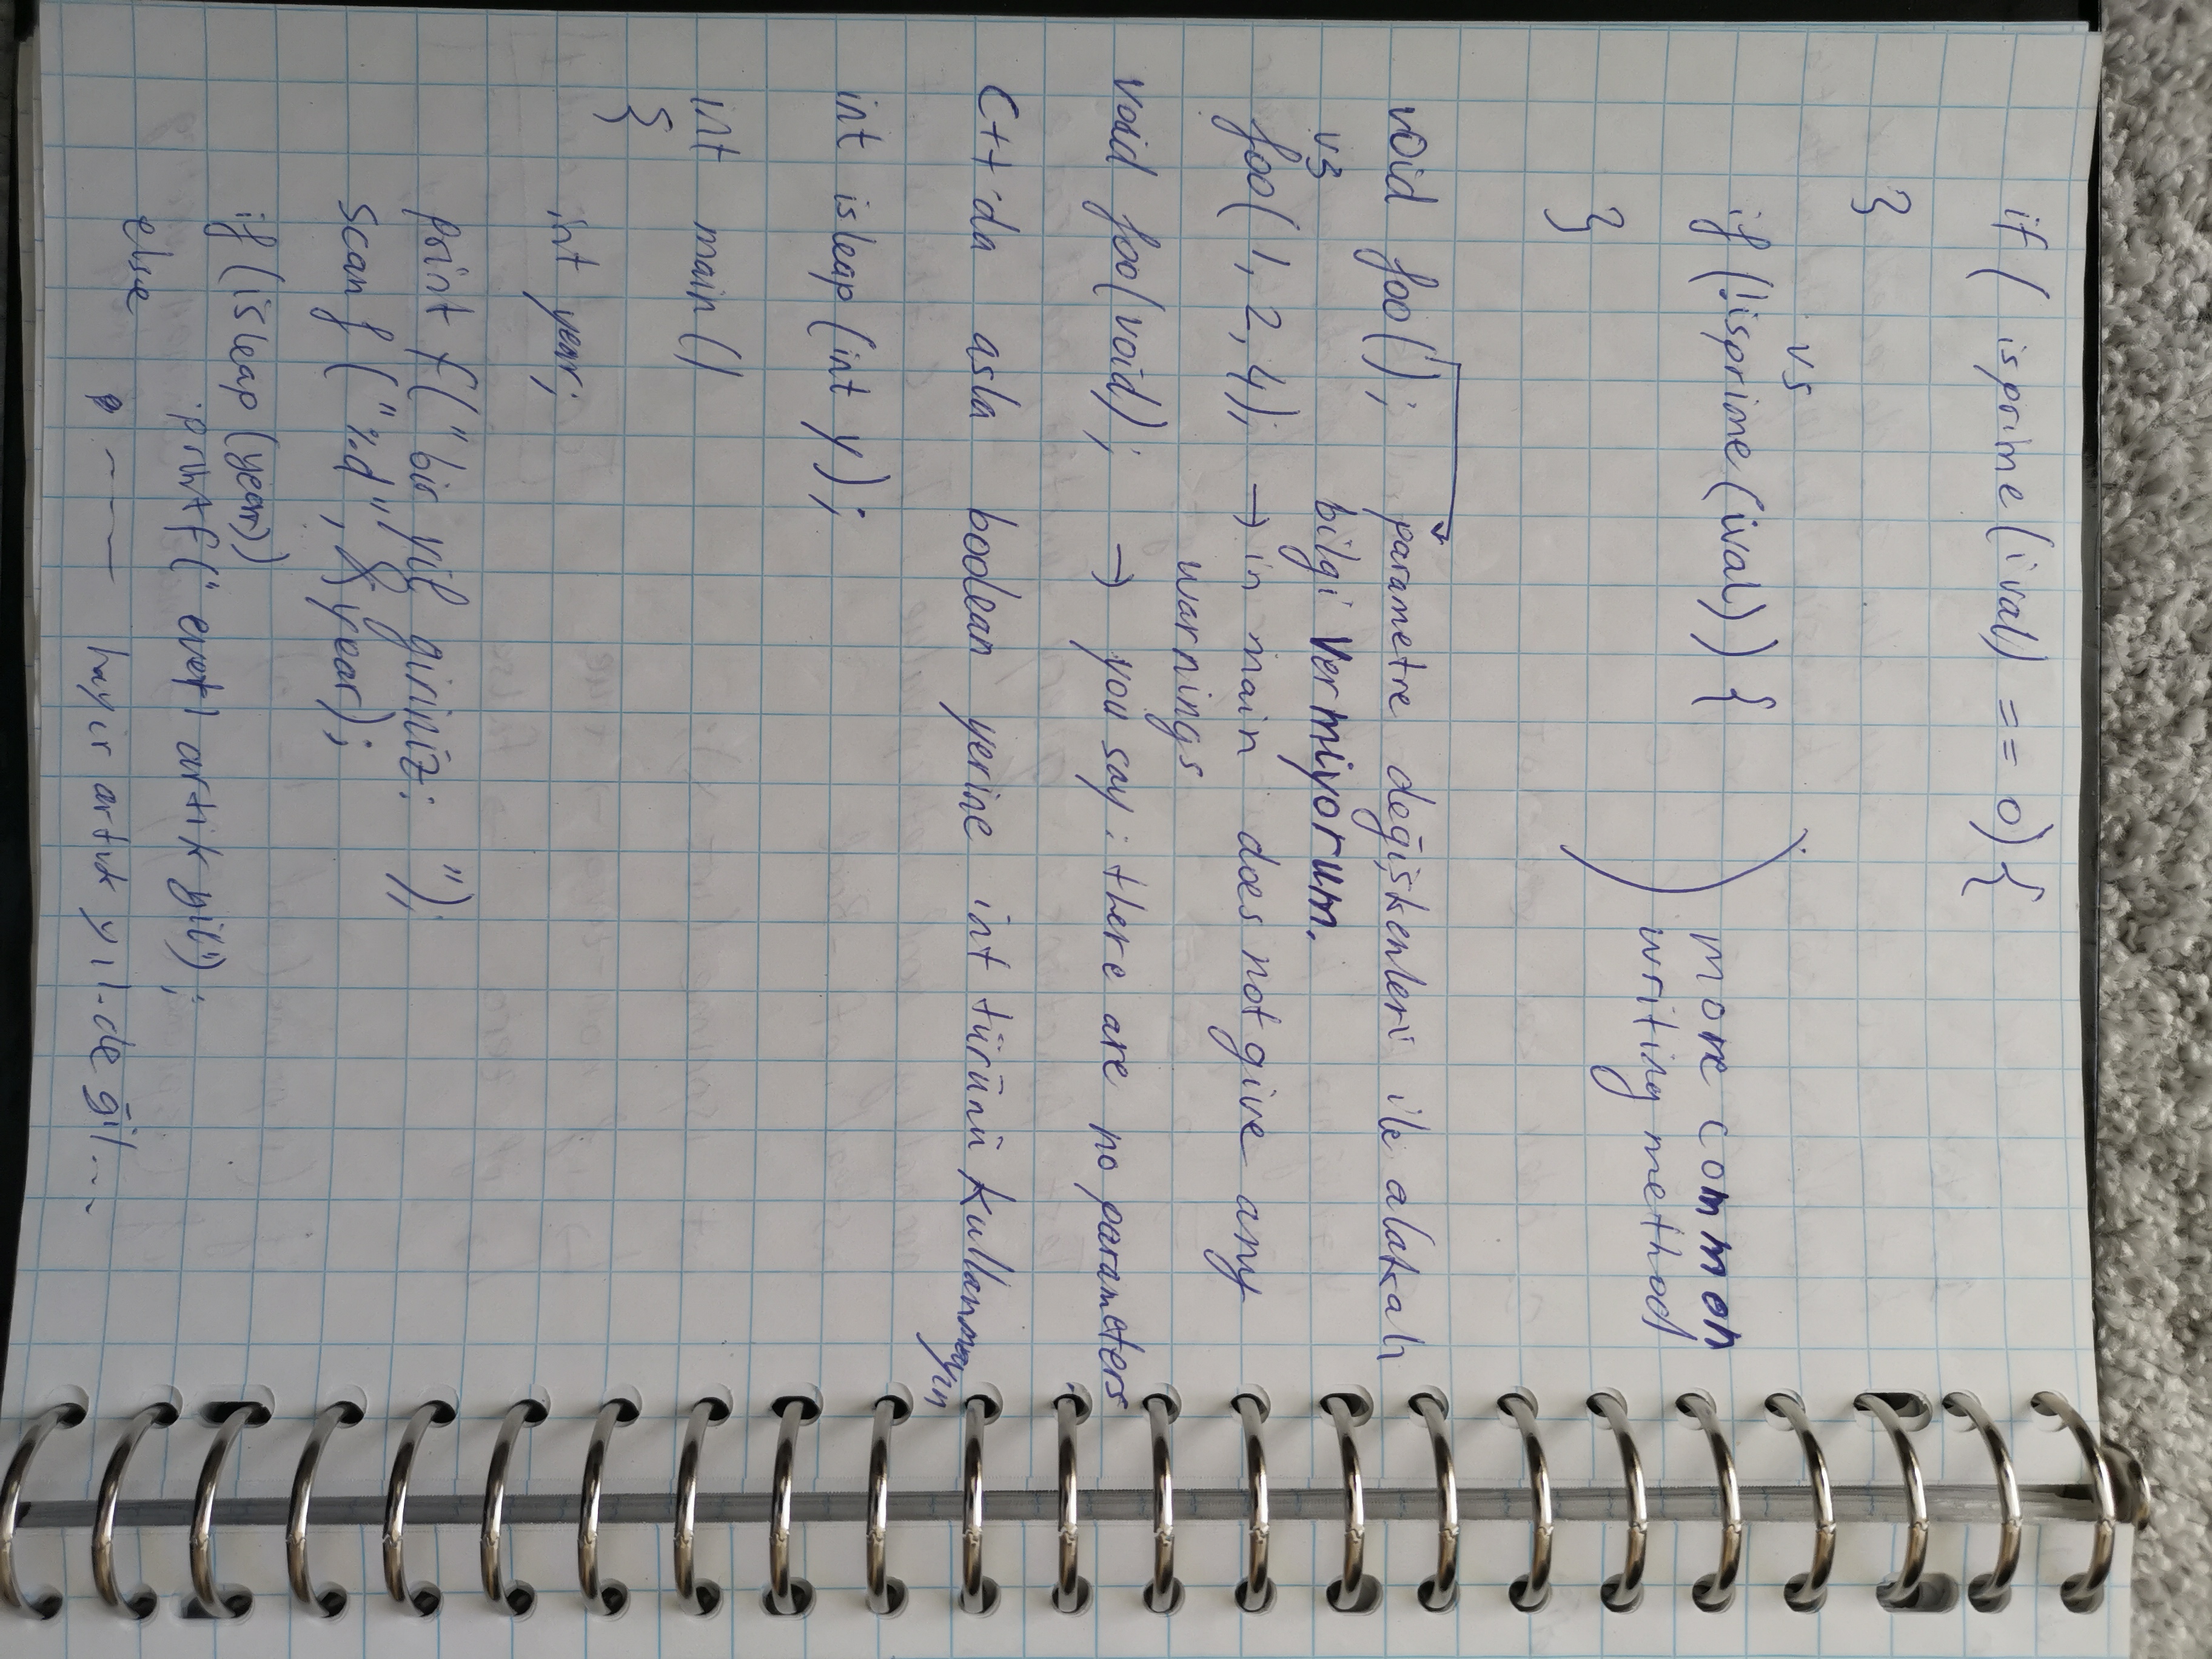 if ( isprime(ival) == 0) {
}
vs
if (!isprime(ival)) {
}
more common
writing method
void foo(); parametre değişkenleri ile alakalı
bilgi vermiyorum.
vs
foo( 1, 2, 4); → in main does not give any
warnings
void foo(void); → you say: there are no parameters
C++'da asla boolean yerine int türünü kullanmayın
int isleap (int y);
int main ()
{
int year;
printf("bir yıl giriniz: ");
scanf ("%d", &year);
if (isleap (year))
printf("evet artık yıl");
else
hayır artık yıl değil...